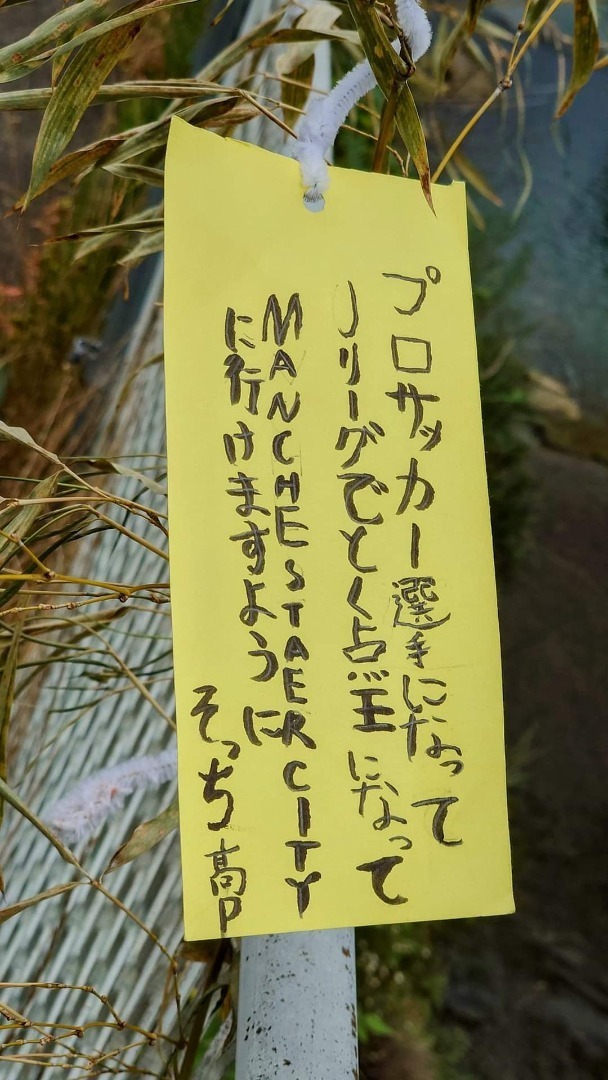 プロサッカー選手になって
Jリーグでとく点王になって
MANCHESTAERCITY
に行けますように
そっち高P